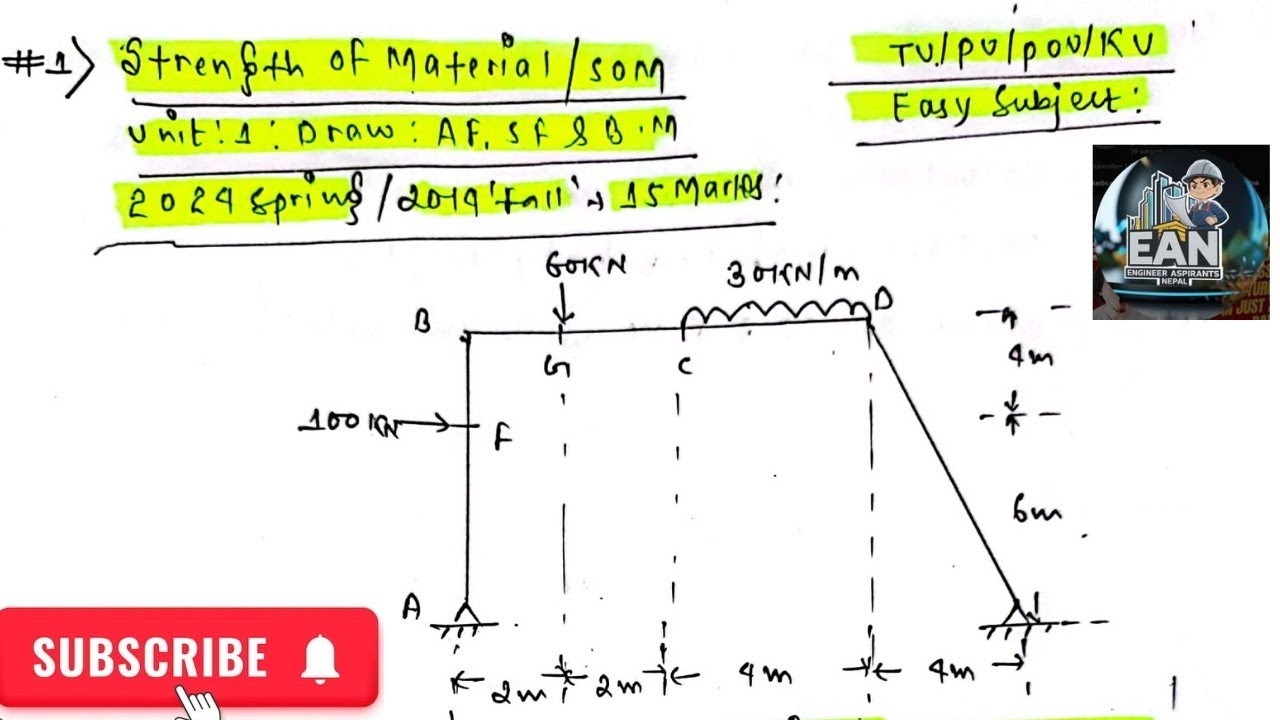 #1) Strength of Material/SOM
Unit:1: Draw: AF, SF & B.M
2024 Spring/2019 'Fall' → 15 Marks:
TU/PU/POU/KU
Easy Subject:
EAN
ENGINEER ASPIRANTS
NEPAL
60KN
30KN/m
B
D
G
C
4m
100KN
F
6m
A
SUBSCRIBE
2m
2m
4m
4m